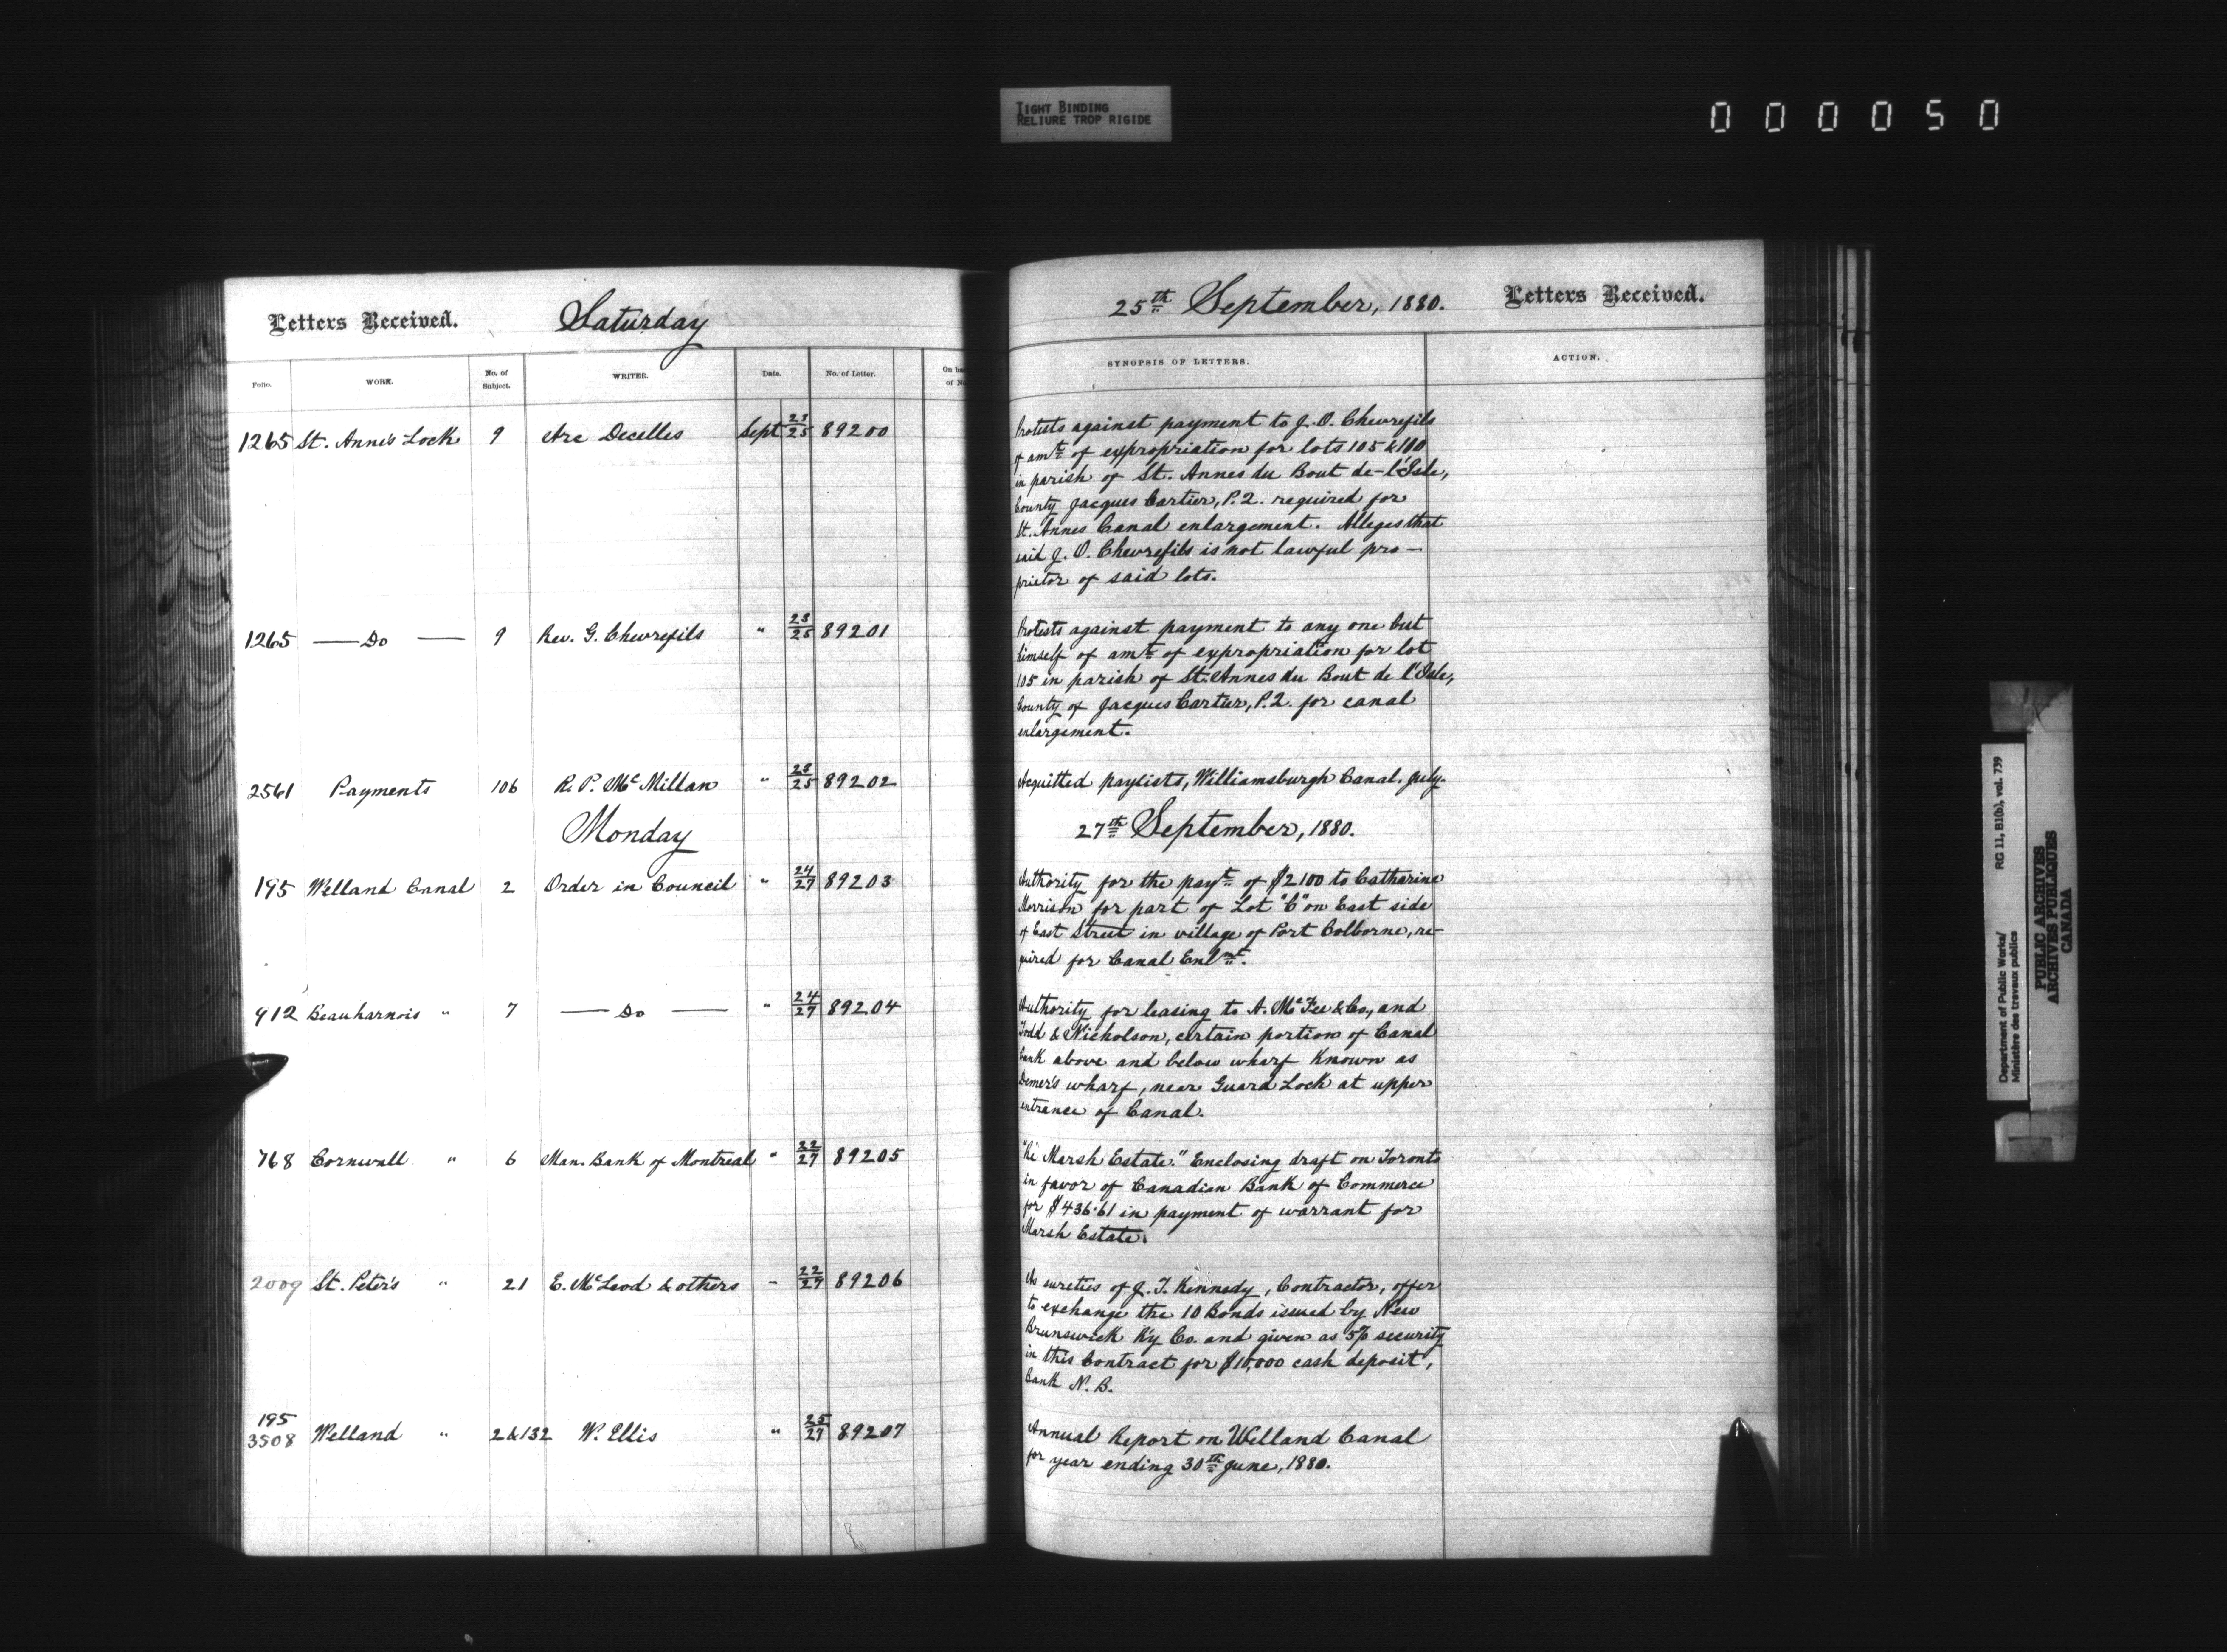 TIGHT BINDING
RELIURE TROP RIGIDE
000050
Letters Received. Saturday
Folio. WORK. No. of Subject. WRITER. Date. No. of Letter. On back of No.
1265 St. Anne's Lock 9 Arc Decelles Sept 23/25 89200
1265 — Do — 9 Rev. G. Chevrefils " 23/25 89201
2561 Payments 106 R. P. McMillan " 23/25 89202
Monday
195 Welland Canal 2 Order in Council " 24/27 89203
912 Beauharnois " 7 — Do — " 24/27 89204
768 Cornwall " 6 Man. Bank of Montreal " 22/27 89205
2009 St. Peter's " 21 E. McLeod & others " 22/27 89206
195
3508 Welland " 2 & 132 W. Ellis " 25/27 89207
25th September, 1880. Letters Received.
SYNOPSIS OF LETTERS. ACTION.
Protests against payment to J. O. Chevrefils
of amt of expropriation for lots 105 & 100
in parish of St. Annes du Bout de-l'Isle,
County Jacques Cartier, P.Q. required for
St. Annes Canal enlargement. Alleges that
said J. O. Chevrefils is not lawful pro-
prietor of said lots.
Protests against payment to any one but
himself of amt of expropriation for lot
105 in parish of St. Annes du Bout de l'Isle,
County of Jacques Cartier, P.Q. for canal
enlargement.
Acquitted paylists, Williamsburgh Canal, July.
27th September, 1880.
Authority for the payt of $2100 to Catharine
Morrison for part of Lot "C" on East side
of East Street in village of Port Colborne, re-
quired for Canal Enlmt.
Authority for leasing to A. McFee & Co., and
Todd & Nicholson, certain portion of Canal
bank above and below wharf known as
Demer's wharf, near Guard Lock at upper
entrance of Canal.
"Re Marsh Estate." Enclosing draft on Toronto
in favor of Canadian Bank of Commerce
for $436.61 in payment of warrant for
Marsh Estate.
As sureties of J. T. Kennedy, Contractor, offer
to exchange the 10 Bonds issued by New
Brunswick Ry Co. and given as 5% security
in this Contract for $10,000 cash deposit,
Bank N. B.
Annual Report on Welland Canal
for year ending 30th June, 1880.
Department of Public Works/ RG 11, B1(b), vol. 739
Ministère des travaux publics
PUBLIC ARCHIVES
ARCHIVES PUBLIQUES
CANADA